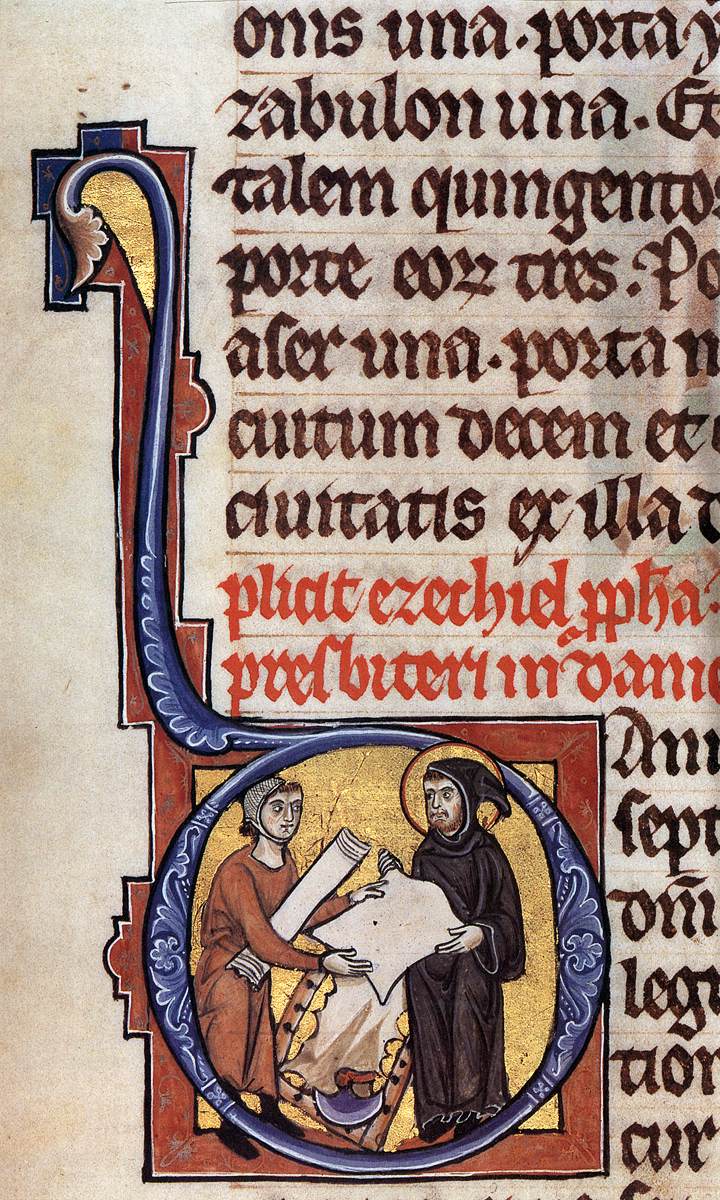 onis una. porta
zabulon una. Et
talem quingento
porte eoꝝ tres. Po
aser una. porta n
cuitum decem et
ciuitatis ex illa d
plicit ezechiel ꝓpħa.
presbiteri in danie
Ann
sept
dn̄i
legu
tion
cur